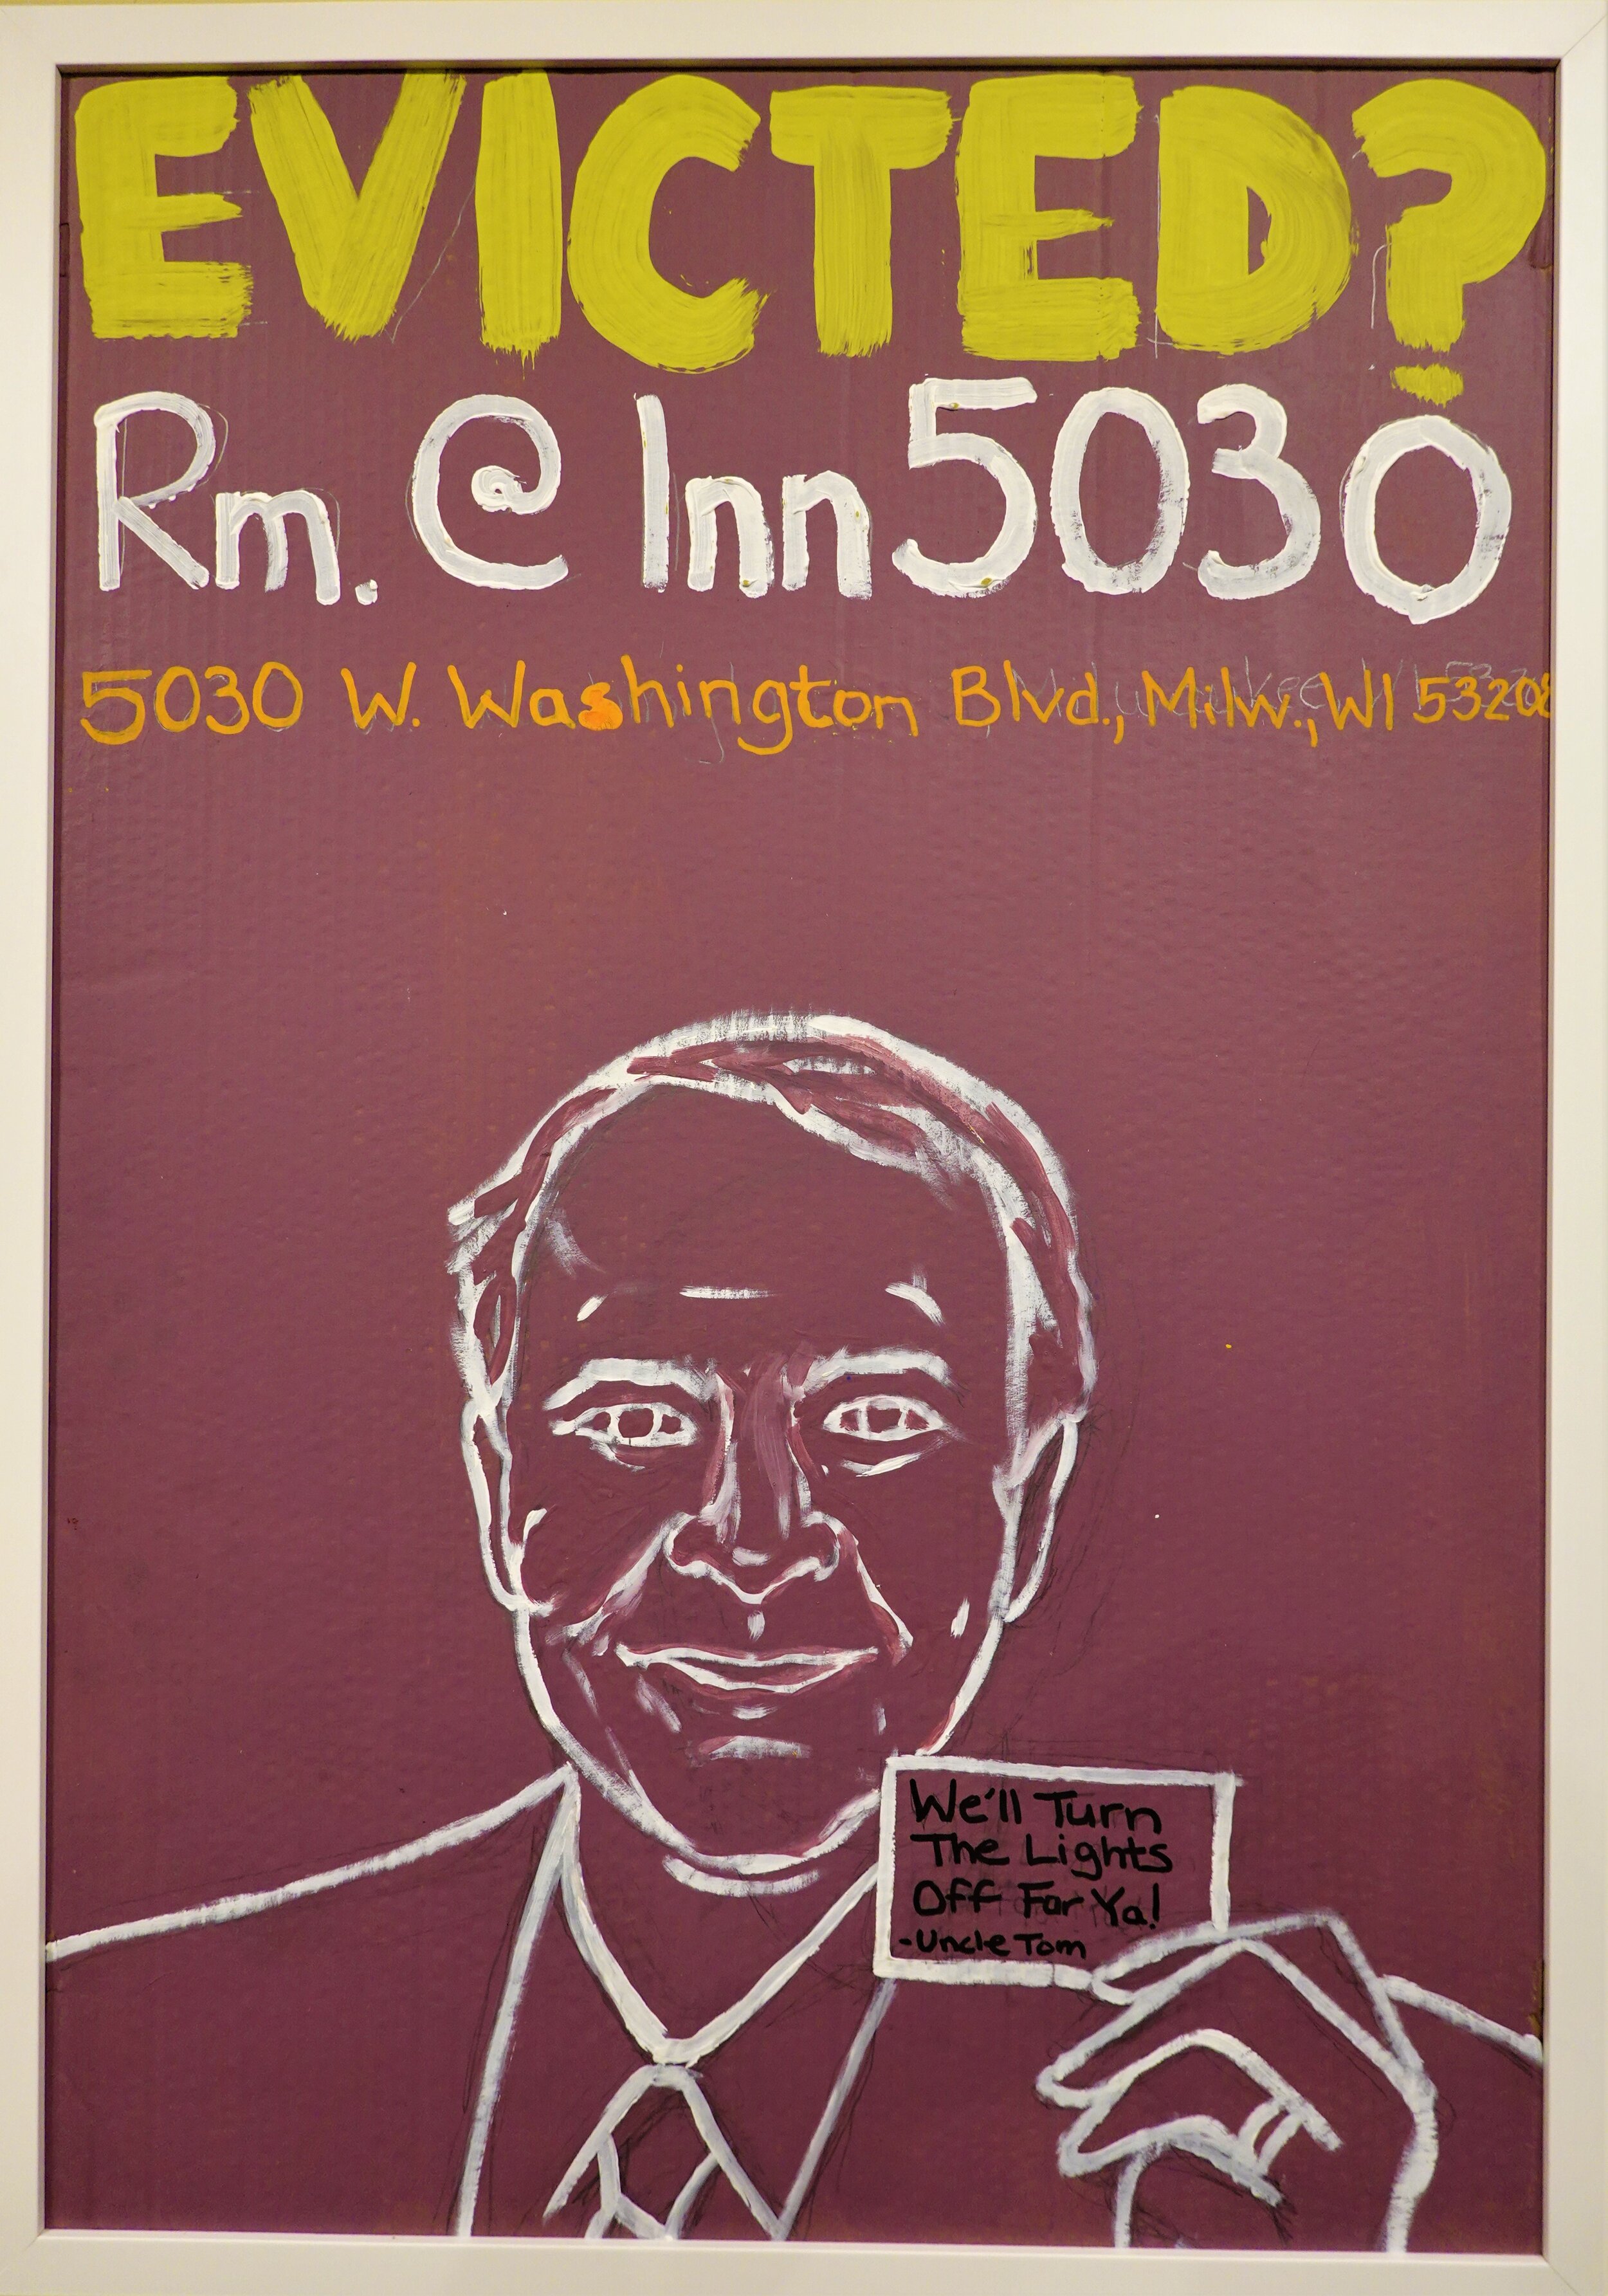 EVICTED?
Rm. @ Inn 5030
5030 W. Washington Blvd., Milw., WI 53208
We'll Turn
The Lights
Off For Ya!
-Uncle Tom